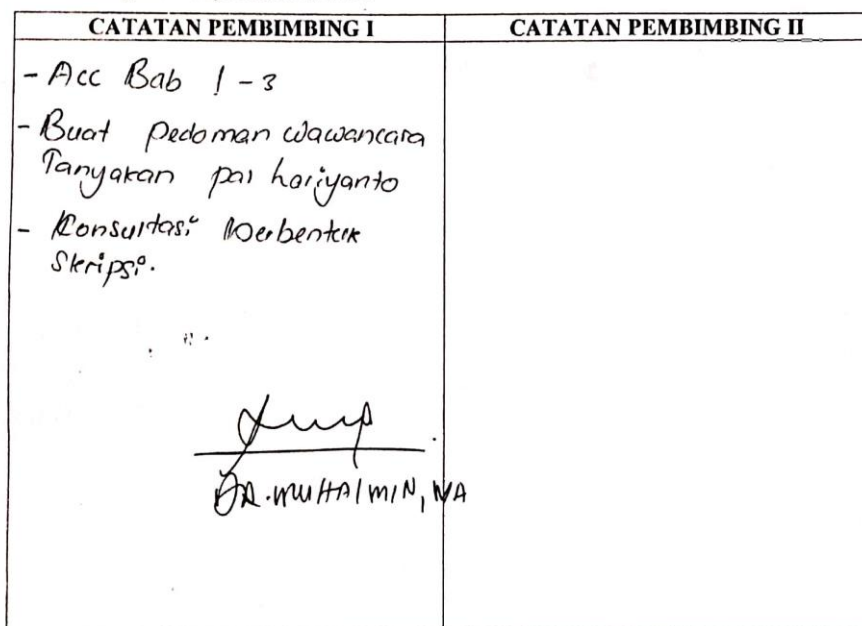 CATATAN PEMBIMBING I
CATATAN PEMBIMBING II
- Acc Bab 1-3
- Buat Pedoman Wawancara
Tanyakan pai hariyanto
- Konsultasi berbentuk
Skripsi.
DR. MUHAIMIN, MA